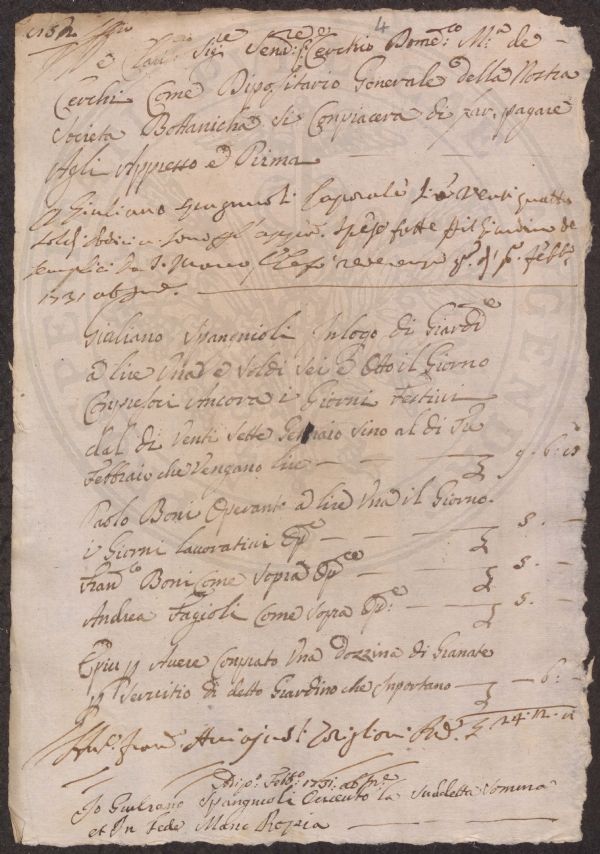 4
Sig.re Send.re Cerchio Dom.co M.a de
Cerchi Come Dipositario Generale della Nostra
Società Bottanicha si Conpiacera di far pagare
Agli Appresso e Pirma
Giuliano Spagnioli Caporale lire Venti quattro
soldi dodici sono spese fatte p il Giardino de
semplici da S. Marco febb.
1731 ab Inc.e
Giuliano Spangnioli In logo di Giard.e
a lire Una e soldi sei e Otto il Giorno
Conpresoci Ancora i Giorni Festivi
dal di Venti sette Gennaio sino al di Tre
Febbraio che Vengano lire — 9. 6. 8
Paolo Boni Operante a lire Una il Giorno
i Giorni lavorativi — 5. —
Fran.co Boni Come Sopra — 5. —
Andrea Fagioli Come Sopra — 5. —
E piu p Avere Conprato Una Dozzina di Granate
p Servitio di detto Giardino che Inportano — 6. —
24. 12.
Febb.o 1731 ab Inc.e
Io Giuliano Spangnioli la Suddetta Somma
et In fede Mano Propia